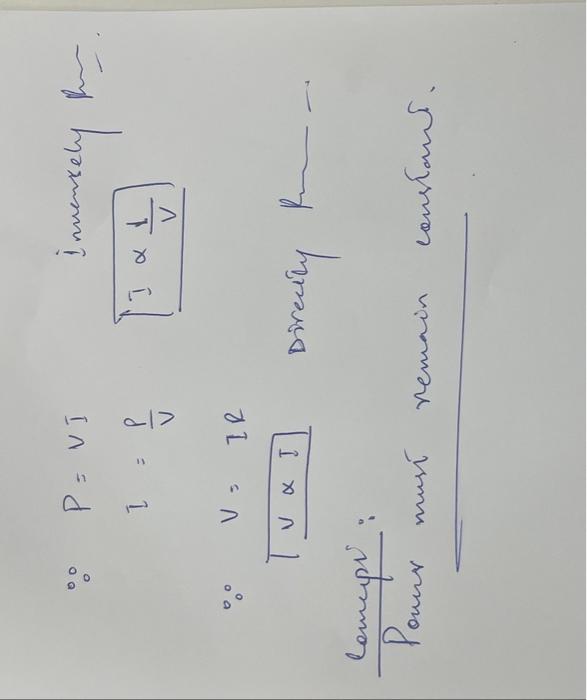 ∴ P = VI Inversely
I = P/V I ∝ 1/V
∴ V = IR
V ∝ I Directly
Concept:
Power must remain constant.